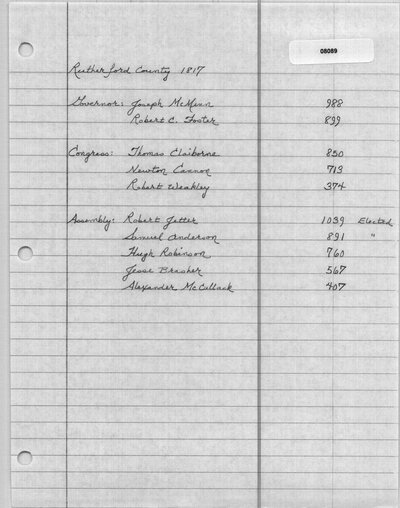 08089
Rutherford County 1817
Governor: Joseph McMinn 988
Robert C. Foster 899
Congress: Thomas Claiborne 850
Newton Cannon 713
Robert Weakley 374
Assembly: Robert Jetter 1039 Elected
Samuel Anderson 891 "
Hugh Robinson 760
Jesse Brasher 567
Alexander McCullack 407